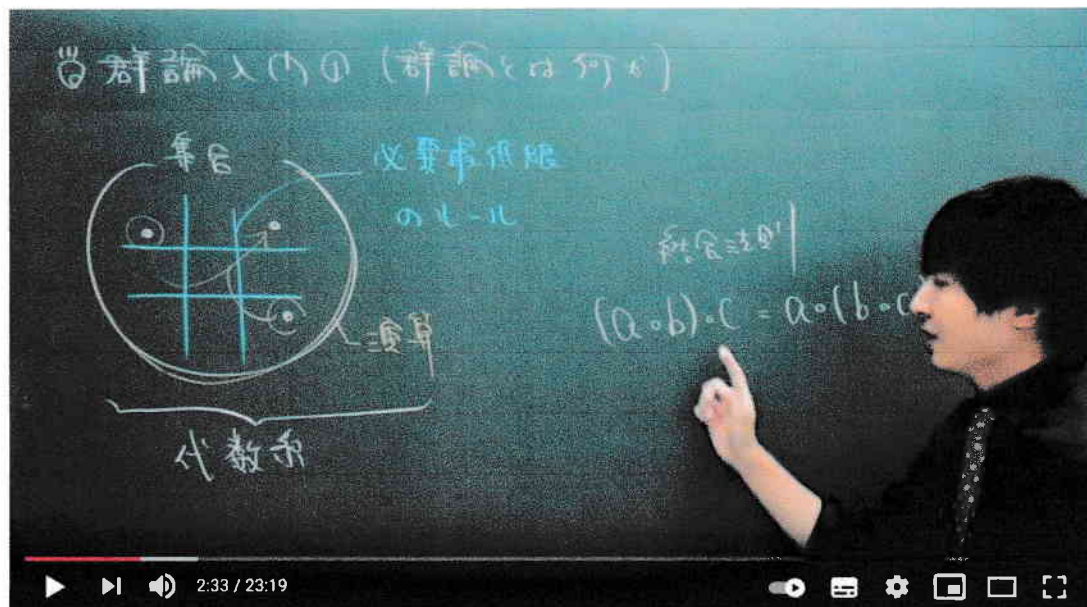 群論入門① (群論とは何か)
集合
必要最低限
のルール
演算
代数系
結合法則
(a∘b)∘c = a∘(b∘c
2:33 / 23:19